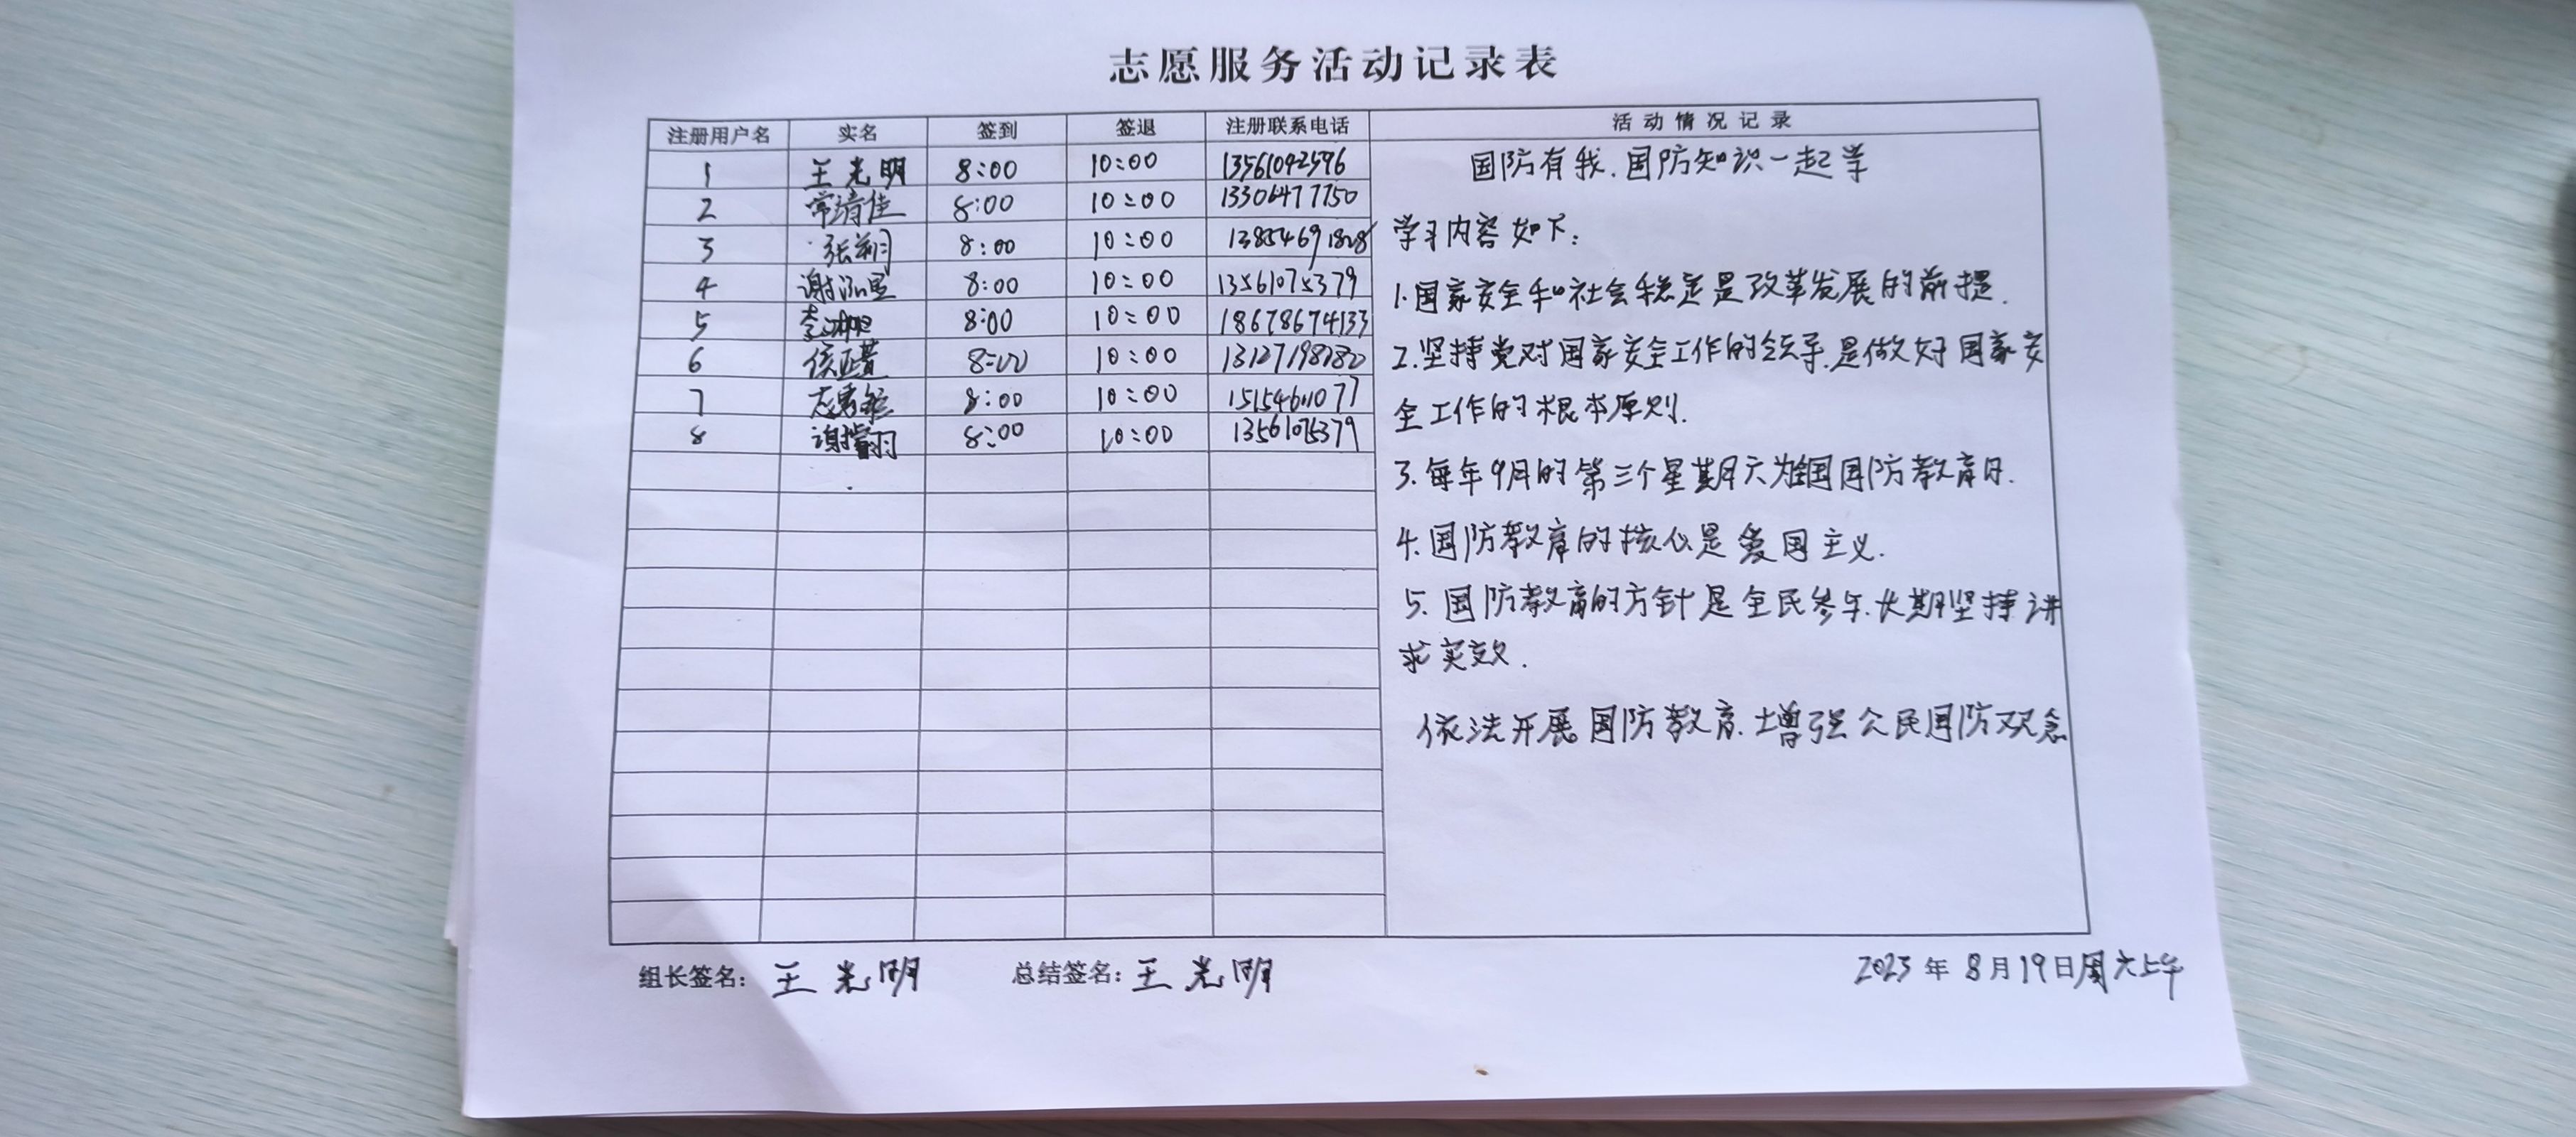 志愿服务活动记录表
注册用户名 实名 签到 签退 注册联系电话 活动情况记录
1 王光明 8:00 10:00 13561042596
2 常靖佳 8:00 10:00 13306477750
3 张翔 8:00 10:00
4 8:00 10:00 13561075379
5 8:00 10:00 18678674133
6 侯正
7 8:00 10:00
8 谢 8:00 10:00 13561075379
国防有我.国防知识一起学
学习内容如下:
1.国家安全和社会稳定是改革发展的前提.
2.坚持党对国家安全工作的领导.是做好国家安
全工作的根本原则.
3.每年9月的第三个星期六为全国国防教育日.
4.国防教育的核心是爱国主义.
5.国防教育的方针是全民参与.长期坚持讲
求实效.
依法开展国防教育.增强公民国防观念
组长签名: 王光明 总结签名: 王光明 2023年8月19日周六上午